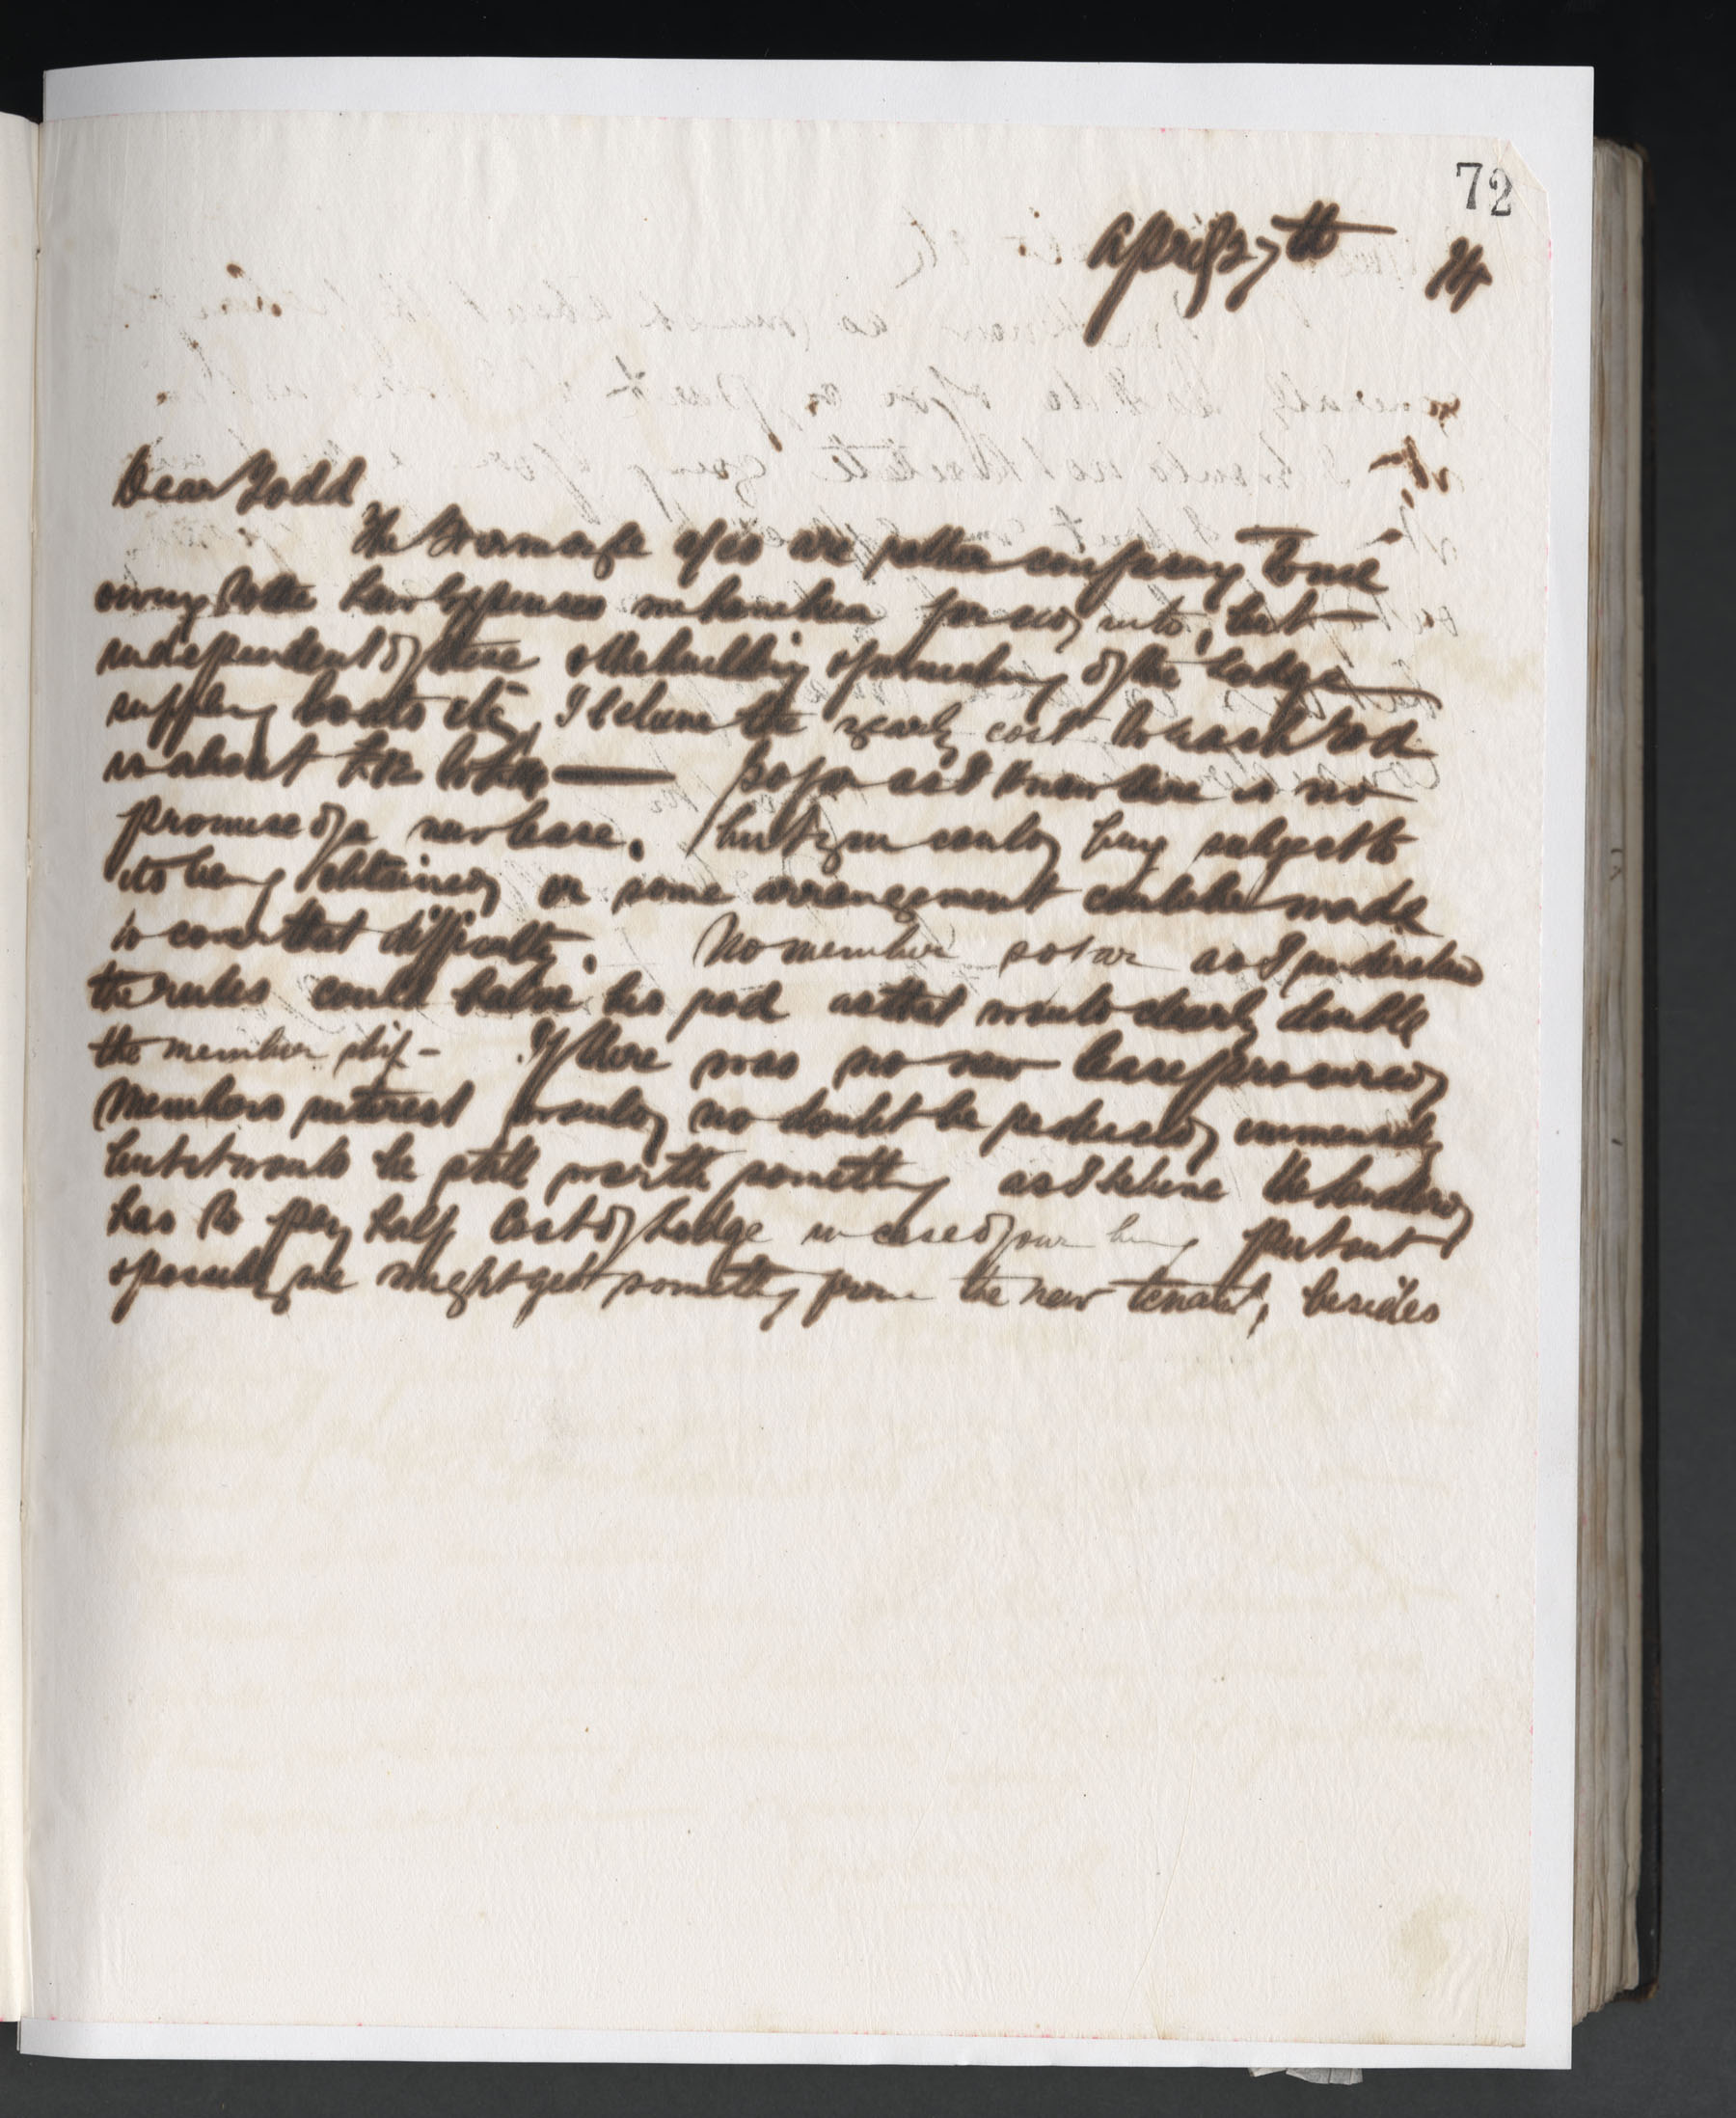 72
April 27th 94
Dear Todd
The are rather confusing to me
owing to the heavy expenses we have been forced into, but
independent of these & the building & furnishing of the Lodge
supplying boats etc, I believe the yearly cost to each rod
is about So far as I know there is no
promise of a new lease. but you could buy subject to
its being obtained or some arrangement could be made
to cover that difficulty. No member so far as I understand
the rules could halve his rod as that would clearly double
the member ship - If there was no new lease procured
Members interest would no doubt be reduced immensely
but it would be still worth something as I believe the landlord
has to pay half cost of Lodge in case of our being put out
& possibly we might get something from the new tenant, besides